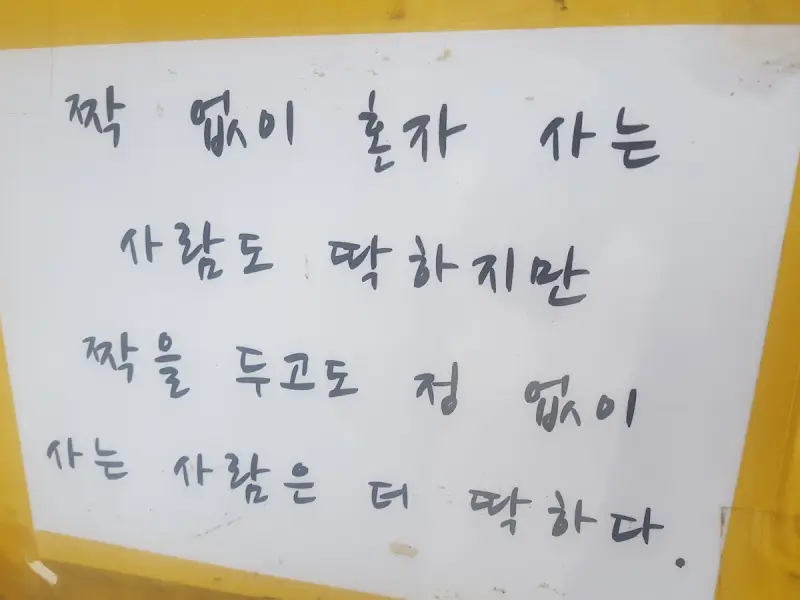 짝 없이 혼자 사는
사람도 딱하지만
짝을 두고도 정 없이
사는 사람은 더 딱하다.